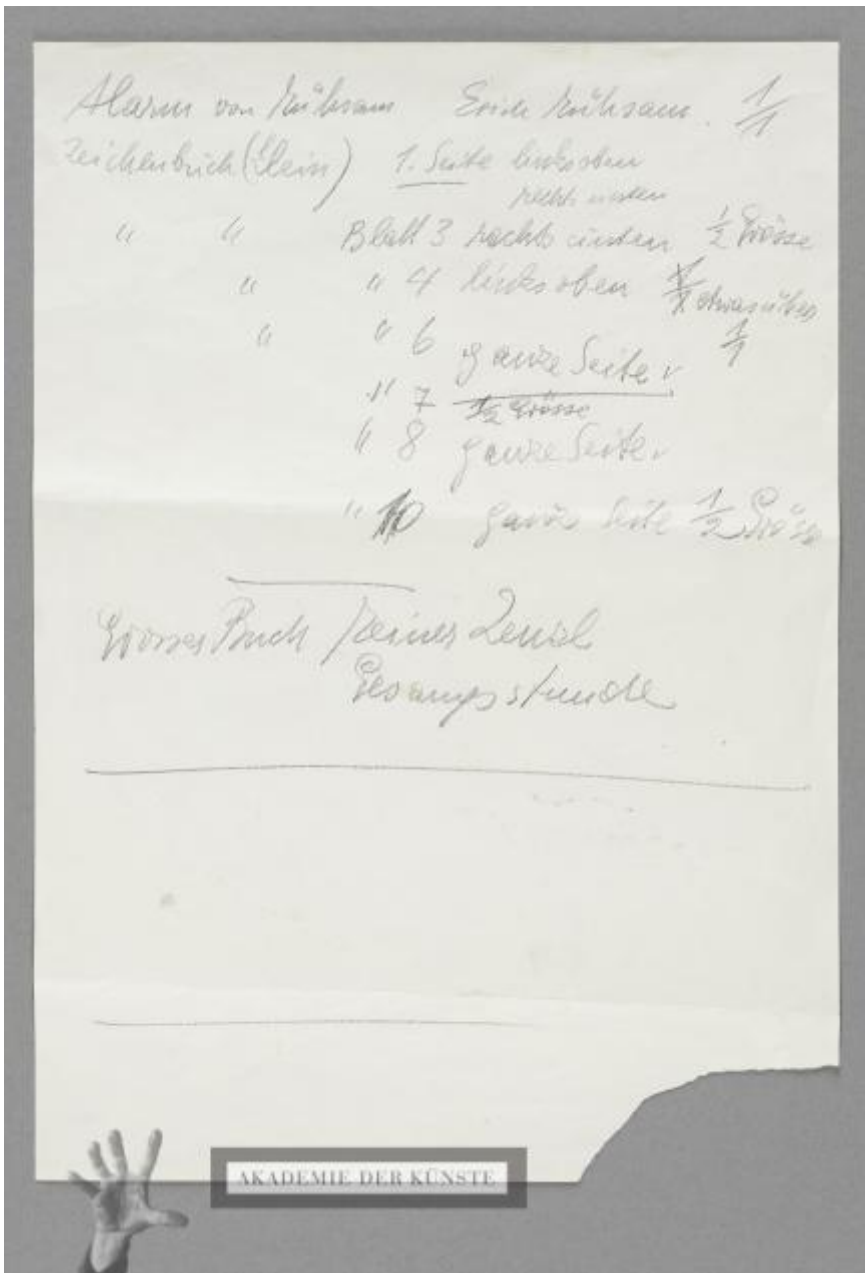 Alarm von Mühsam Erich Mühsam. 1/1
Zeichenbuch (klein) 1. Seite links oben
rechts unten
" " Blatt 3 rechts unten 1/2 Grösse
" " 4 links oben 1/1 etwas über
" " 6 ganze Seite 1/1
" 7 1/2 Grösse
" 8 ganze Seite
" 10 ganze Seite 1/2 Grösse
Grosses Buch
Gesangsstunde
AKADEMIE DER KÜNSTE